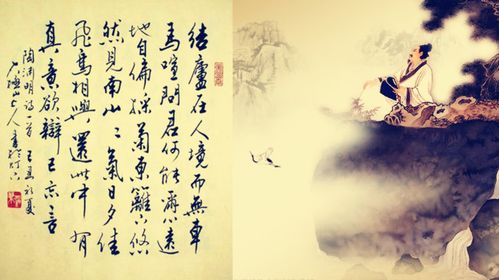 結廬在人境而無車
馬喧問君何能爾心遠
地自偏採菊東籬下悠
然見南山〻氣日夕佳
飛鳥相與還此中有
真意欲辯已忘言
陶渊明诗一首 初夏
山人書於灯下